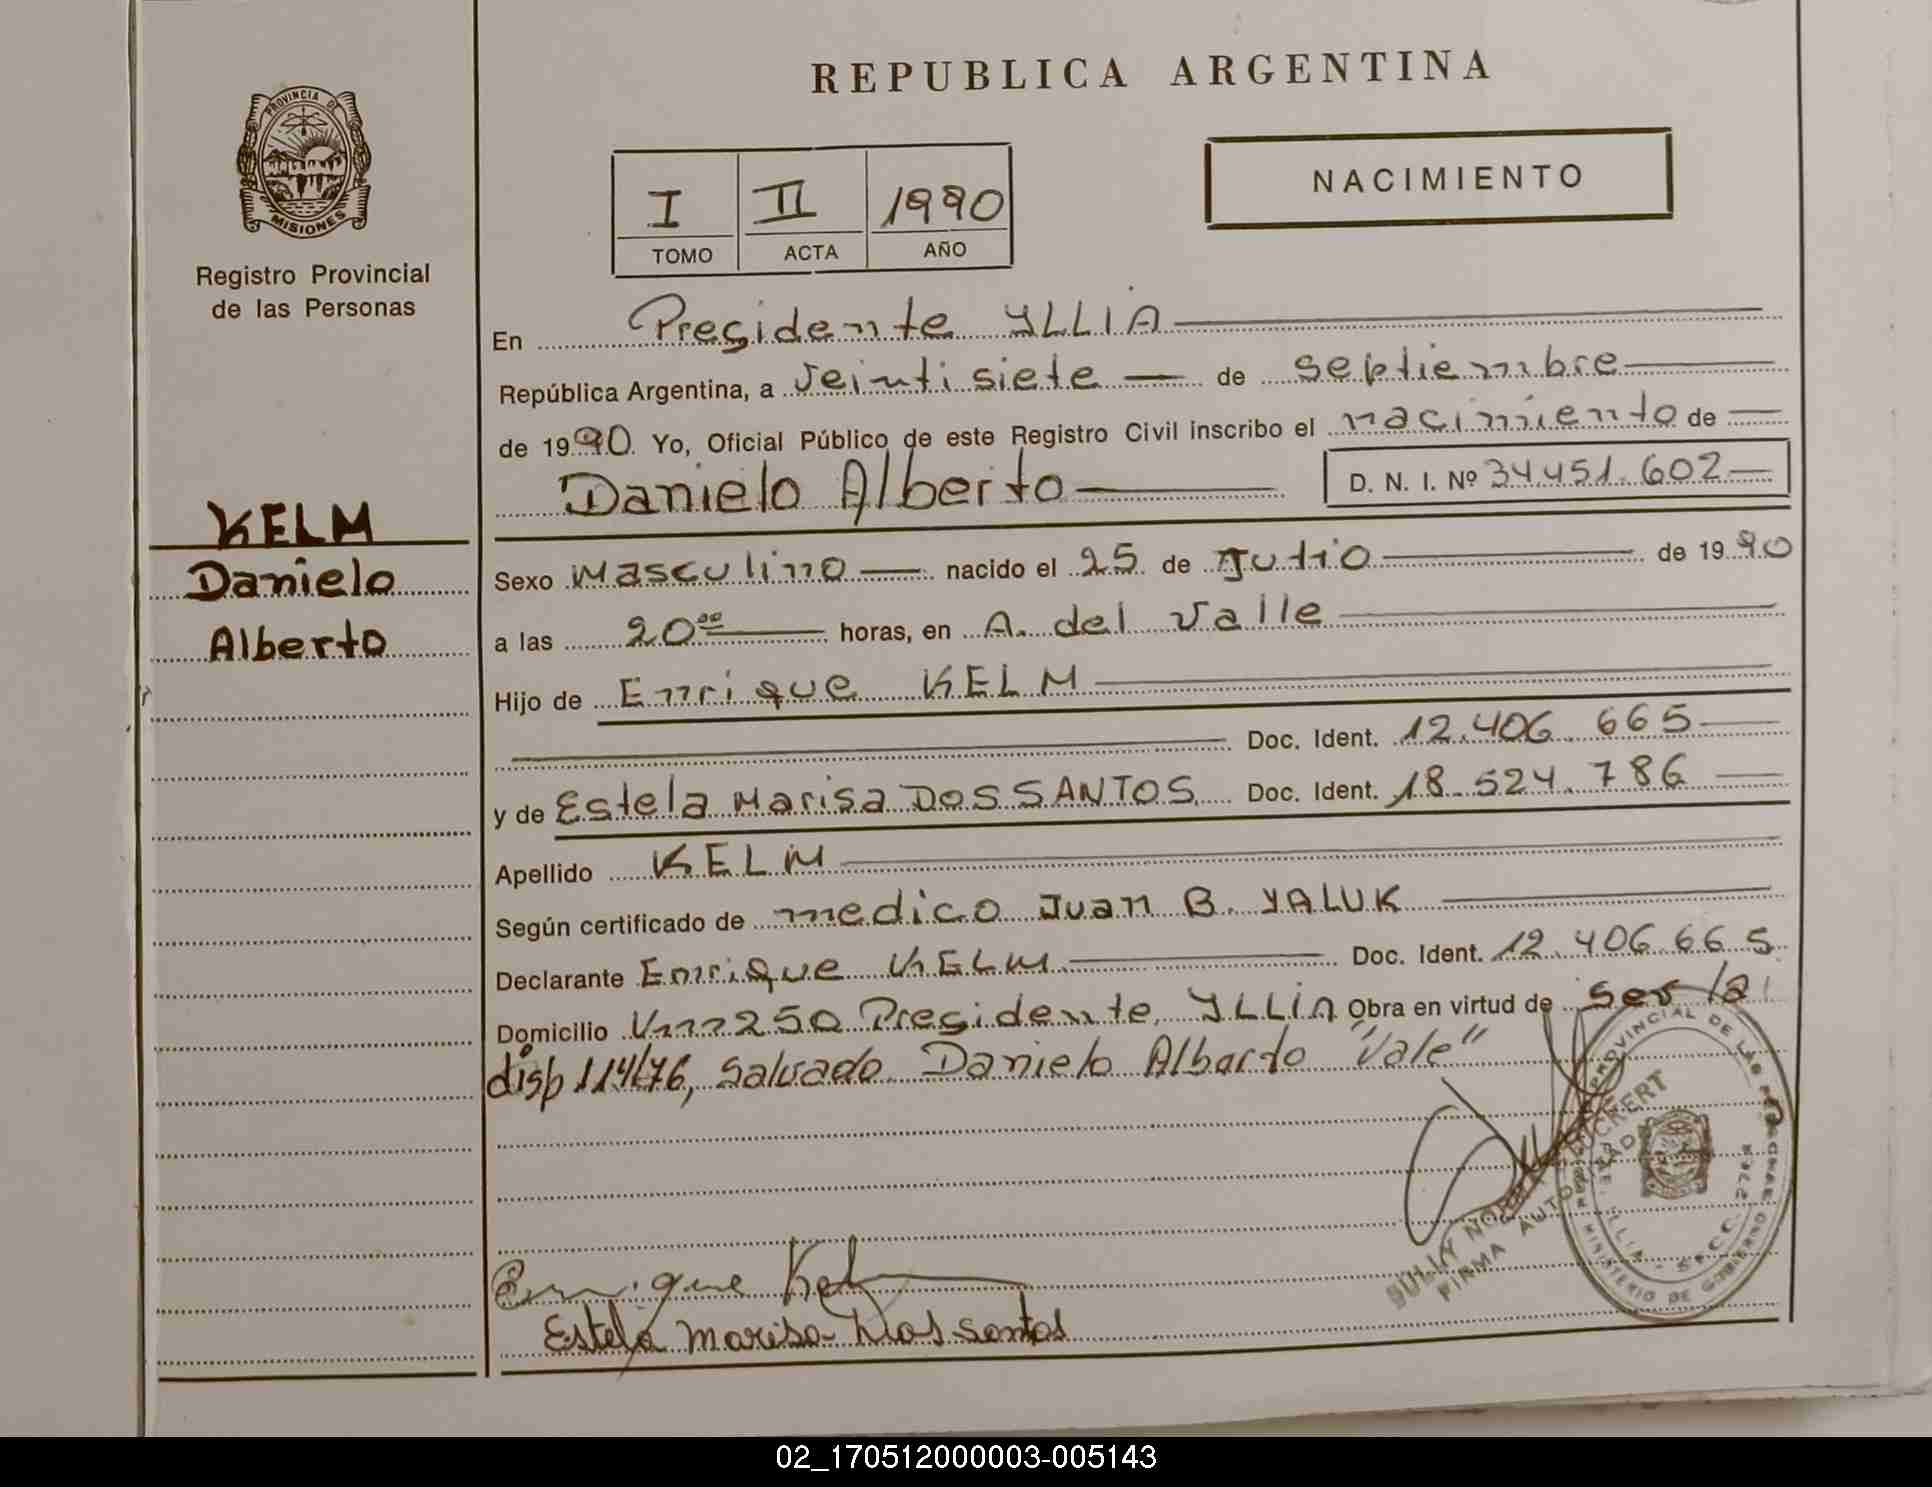 REPUBLICA ARGENTINA
PROVINCIA DE
MISIONES
Registro Provincial
de las Personas
I II 1990
TOMO ACTA AÑO
NACIMIENTO
En Presidente YLLIA
República Argentina, a veintisiete de septiembre
de 1990 Yo, Oficial Público de este Registro Civil inscribo el nacimiento de
Danielo Alberto D. N. I. Nº 34451.602
KELM
Danielo
Alberto
Sexo Masculino nacido el 25 de Julio de 1990
a las 20 00 horas, en A. del Valle
Hijo de Enrique KELM
Doc. Ident. 12.406.665
y de Estela Marisa DOS SANTOS Doc. Ident. 18.524.786
Apellido KELM
Según certificado de medico Juan B. YALUK
Declarante Enrique KELM Doc. Ident. 12.406.665
Domicilio 250 Presidente YLLIA Obra en virtud de ser la
disp 114/76, Salvado Danielo Alberto "Vale"
FIRMA AUTORIZADA
PROVINCIAL DE LAS PERSONAS
MINISTERIO DE GOBIERNO
Enrique Kelm
Estela Marisa Dos Santos
02_170512000003-005143